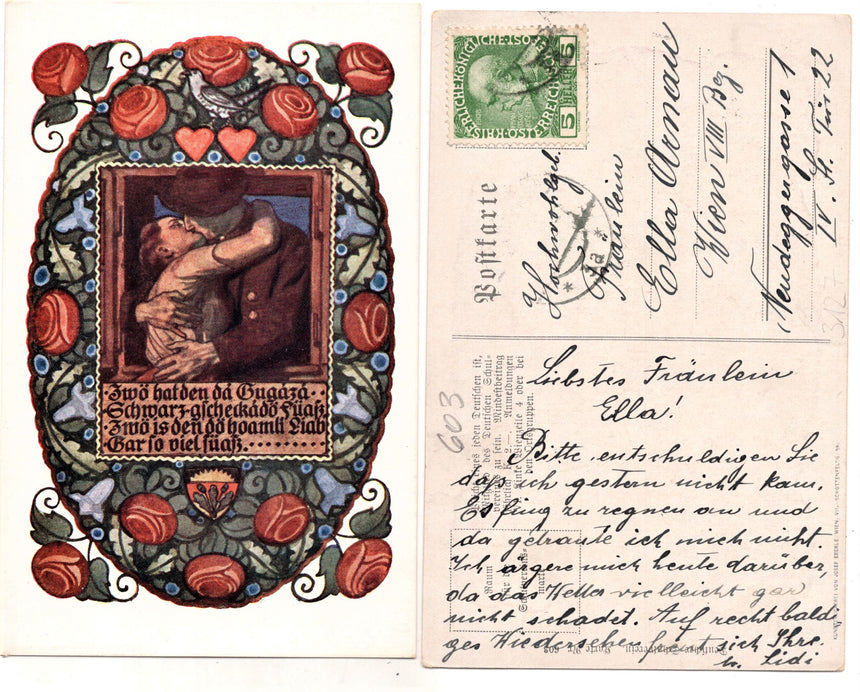 ·Zwö hat den dá Gugázá·
·Schwarz-gscheckádö Füaß,
·Zwö is den dö hoamli Liab
·Gar so viel süaß.........
5 HELLER 5
Postkarte
Hochwohlgeb.
Fräulein
Ella Arnau
Wien VIII Bez.
Neudeggergasse 1
IV. St. Tür 22
603
eines jeden Deutschen ist,
des Deutschen Schul-
vereins zu sein. Mindestbeitrag
jährlich K 2.—. Anmeldungen
Linke Wienzeile 4 oder bei
den Ortsgruppen.
Raum
für die
Schulvereins-
marke
Liebstes Fräulein
Ella!
Bitte entschuldigen Sie
daß ich gestern nicht kam.
Es fing zu regnen an und
da getraute ich mich nicht.
Ich ärgere mich heute darüber,
da das Wetter vielleicht gar
nicht schadet. Auf recht baldi
ges Wiedersehen freut sich Ihre
Lidi
Deutscher Schulverein Karte Nr. 603
VON JOSEF EBERLE WIEN, VII. SCHOTTENFELDG.